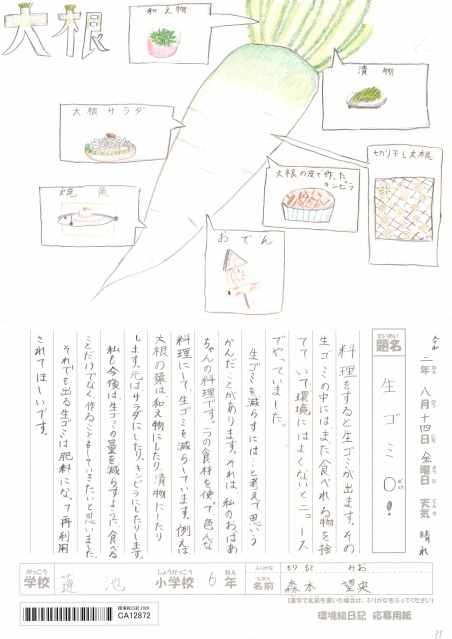 大根
和え物
漬物
大根サラダ
切り干し大根
大根の皮で作った
キンピラ
焼魚
おでん
令和二年八月十四日金曜日天気晴れ
だいめい
題名
生ゴミ0!
ゼロ
料理をすると生ゴミが出ます。その
生ゴミの中にはまだ食べれる物を捨
てていて環境にはよくないとニュース
でやっていました。
生ゴミを減らすには…と考えて思いう
かんだことがあります。それは、私のおばあ
ちゃんの料理です。一つの食材を使って色んな
料理にして、生ゴミを減らしています。例えば
大根の葉は和え物にしたり、漬物にしたり
します。元はサラダにしたり、キンピラにしたりします。
私も今後は、生ゴミの量を減らすように、食べる
ことだけでなく、作ることもしていきたいと思いました。
それでも出る生ゴミは肥料になって再利用
されてほしいです。
がっこう
学校
蓮池
しょうがっこう
小学校
6
ねん
年
ふりがな
もりもと みお
なまえ
名前
森本 望央
(漢字で名前を書いた場合は、ふりがなをふってください)
環境絵日記 2020
CA12872
環境絵日記 応募用紙
31